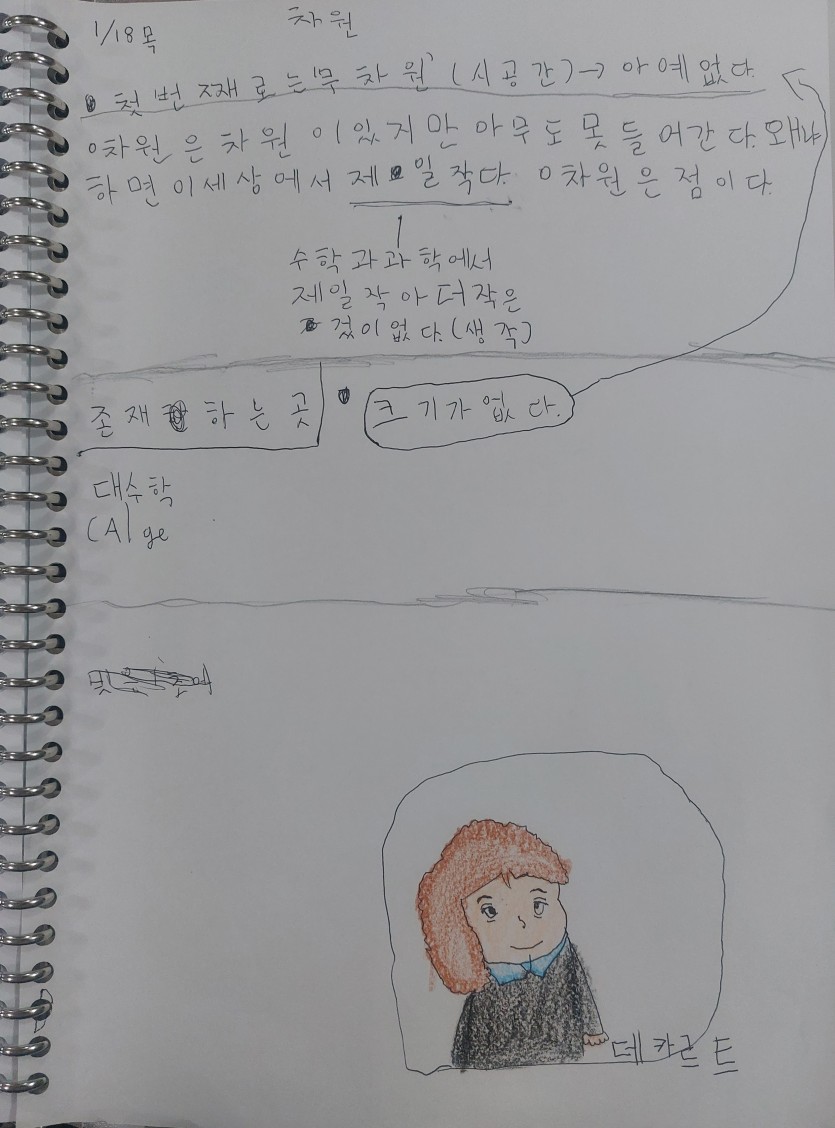 1/18 목
차원
첫 번 째 로 는 '무 차 원' (시공간) → 아 예 없 다.
0차원 은 차원 이 있 지 만 아 무 도 못 들 어 간 다. 왜냐
하 면 이 세 상 에 서 제 일 작 다. 0 차 원 은 점 이 다.
수 학 과 과 학 에 서
제 일 작 아 더 작 은
겄 이 없 다. (생 각)
존 재 하 는 곳
크 기 가 없 다.
대수학
(Alge
데 카 르 트